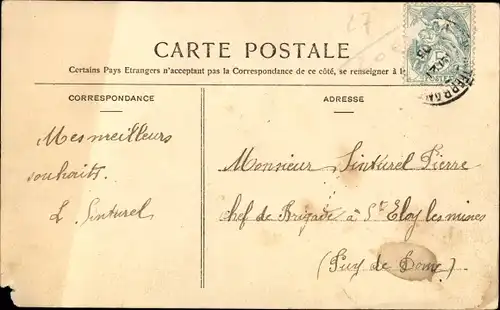 CARTE POSTALE
Certains Pays Etrangers n'acceptant pas la Correspondance de ce côté, se renseigner à
CORRESPONDANCE
ADRESSE
Mes meilleurs
souhaits.
L. Sinturel
Monsieur Sinturel Pierre
chef de Brigade à St Eloy les mines
(Puy de Dome).